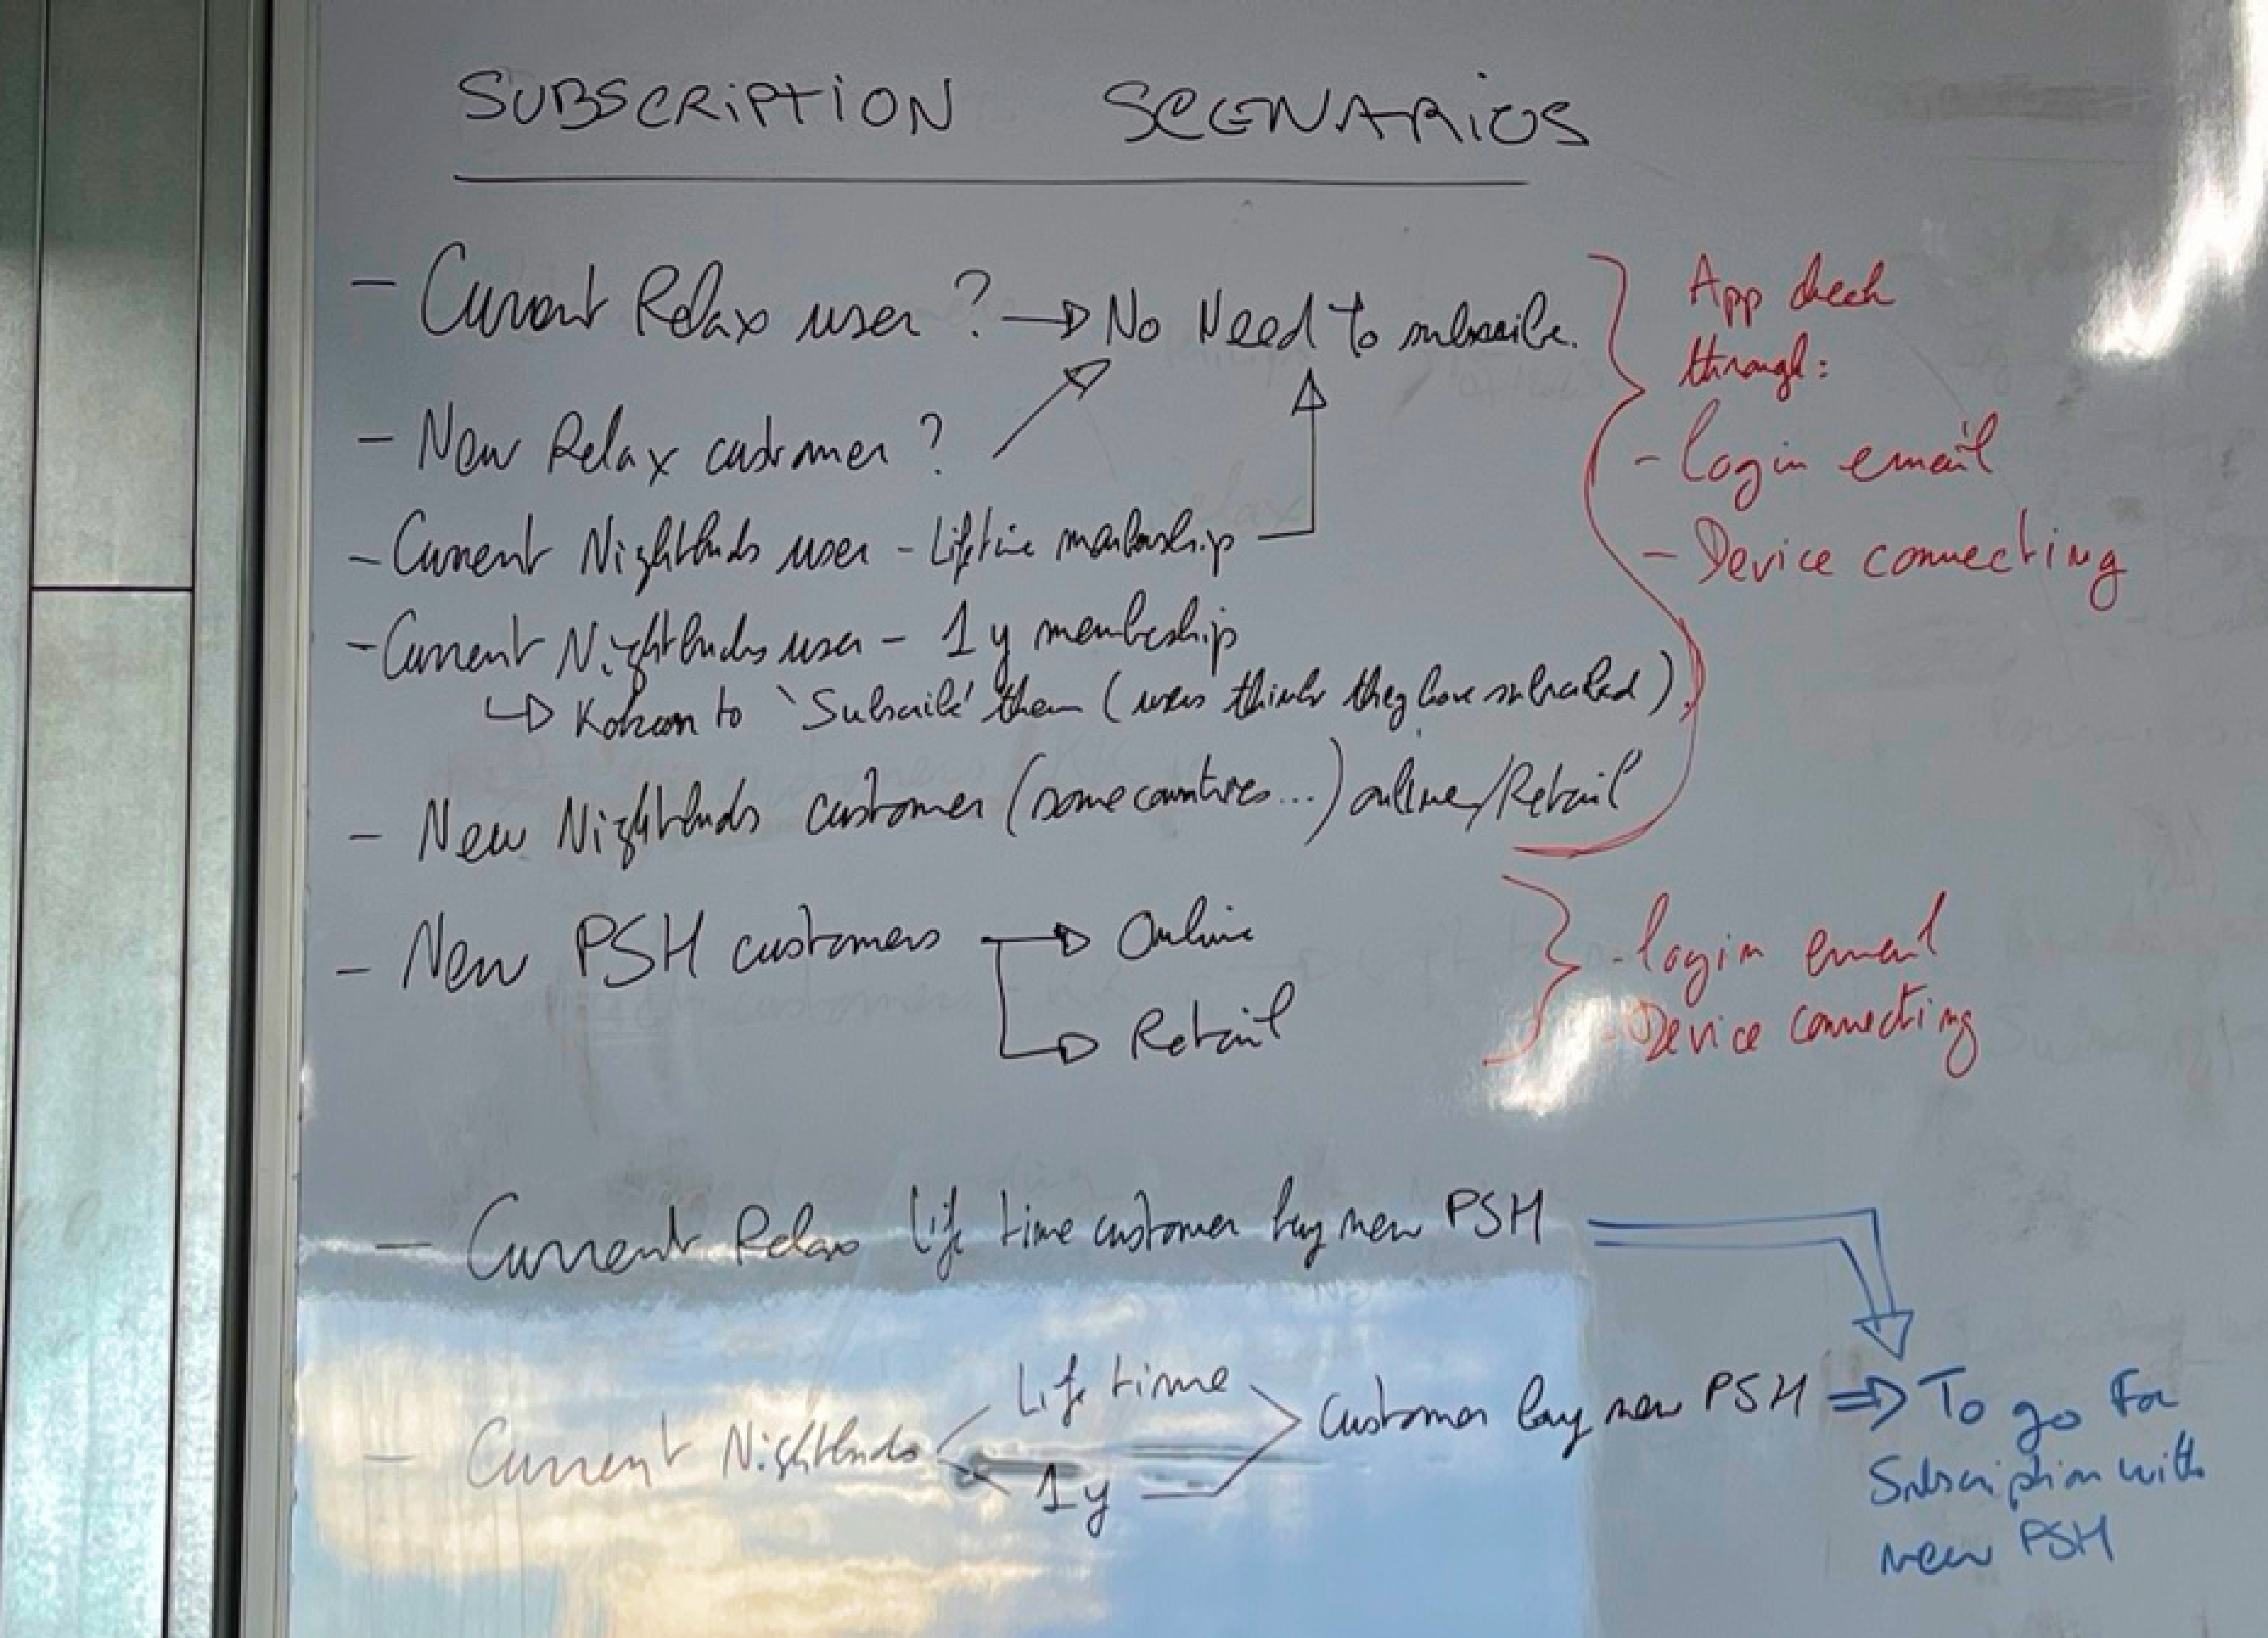 SUBSCRIPTION SCENARIOS
- Current Relax user? → No Need to subscribe.
- New Relax customer?
- Current Nightbuds user - Lifetime membership
- Current Nightbuds user - 1y membership
↳ Kokoon to 'Subscribe' them (users think they have subscribed)
- New Nightbuds customer (some countries...) online/Retail
- New PSH customers → Online
→ Retail
App check
through:
- login email
- Device connecting
- login email
- Device connecting
- Current Relax life time customer buy new PSH
- Current Nightbuds < Life time
1y
> Customer buy new PSH ⇒ To go for
Subscription with
new PSH